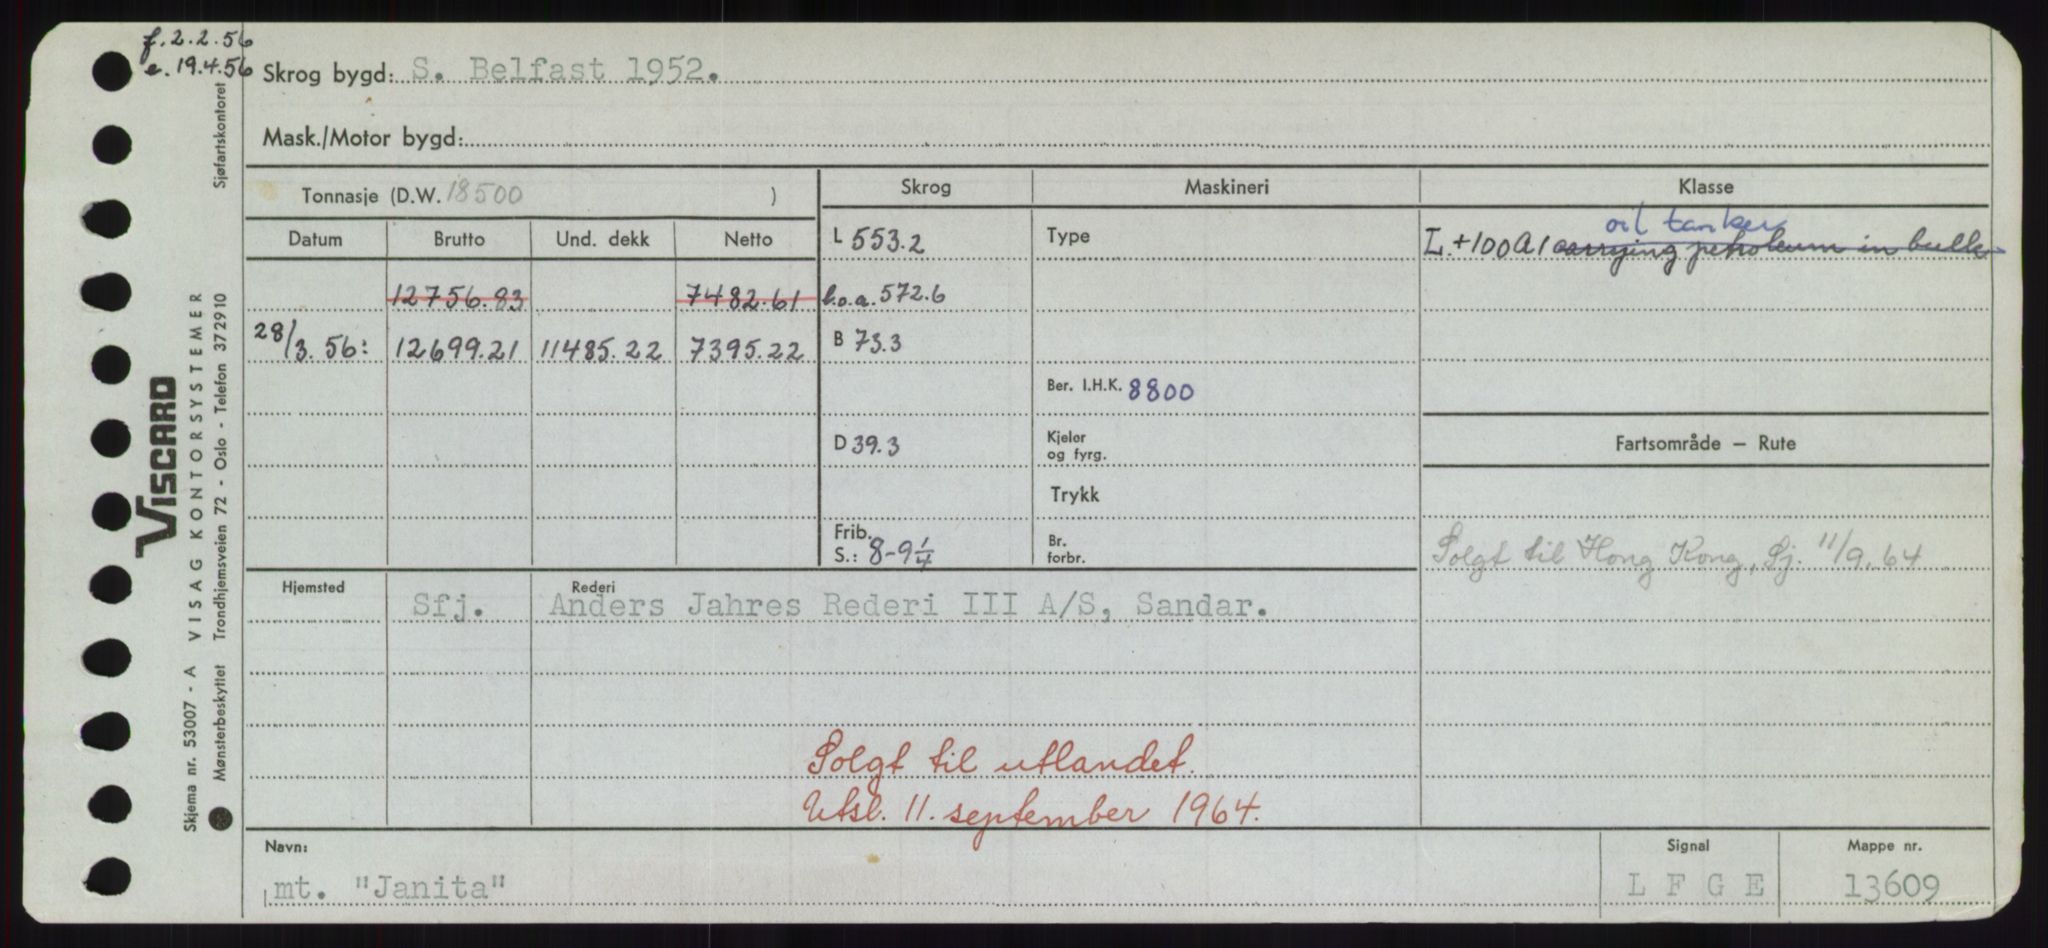 f. 2.2.56
e. 19.4.56
Skrog bygd: S. Belfast 1952.
Mask./Motor bygd:
Tonnasje (D.W. 18500 )
Skrog
Maskineri
Klasse
Datum
Brutto
Und. dekk
Netto
L 553.2
Type
oil tanker
L. +100 A 1 carrying petroleum in bulk
12756.83
7482.61
l.o.a. 572.6
28/3. 56: 12699.21 11485.22 7395.22
B 73.3
Ber. I.H.K. 8800
D 39.3
Kjeler
og fyrg.
Fartsområde – Rute
Trykk
Frib.
S.: 8-9 1/4
Br.
forbr.
Solgt til Hong Kong, Sj. 11/9.64
Hjemsted
Rederi
Sfj. Anders Jahres Rederi III A/S, Sandar.
Solgt til utlandet.
Utsl. 11. september 1964.
Navn:
mt. "Janita"
Signal
L F G E
Mappe nr.
13609
VISCARD
Skjema nr. 53007 - A VISAG KONTORSYSTEMER
Mønsterbeskyttet Trondhjemsveien 72 - Oslo - Telefon 372910 Sjøfartskontoret